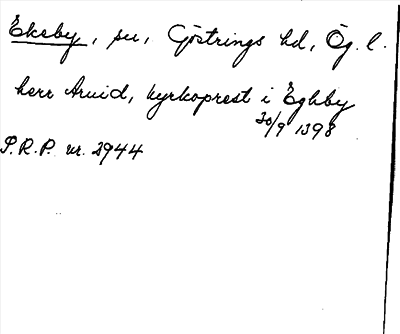 Ekeby, sn, Göstrings hd, Ög. l.
herr Arvid, kyrkoprest i Eghby
30/9 1398
P.R.P. nr. 2944